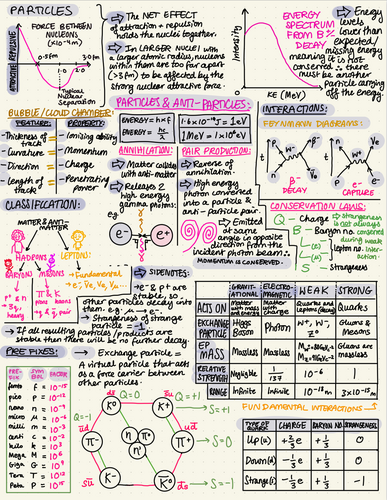 PARTICLES
FORCE BETWEEN
NUCLEONS
(×10⁻⁴ N)
ATTRACTIVE REPULSIVE
0.5fm
3fm
1.0
2.0
Typical
Nuclear
Separation
The NET EFFECT
of attraction + repulsion
holds the nuclei together.
In LARGER NUCLEI with
a larger atomic radius, nucleons
within them are too far apart
(>3fm) to be affected by the
strong nuclear attractive force.
Intensity
KE (MeV)
ENERGY
SPECTRUM
FROM B⁻
DECAY
Energy
levels
lower than
expected,
missing energy
meaning it is
not conserved
∴ there
must be another
particle carrying
off the energy.
BUBBLE/CLOUD CHAMBER:
FEATURE: PROPERTY:
Thickness of track Ionising ability
Curvature Momentum
Direction Charge
Length of track Penetrating power
PARTICLES & ANTI-PARTICLES:
ENERGY = h×f
ENERGY = hc
1.6×10⁻¹⁹J = 1eV
1MeV = 1×10⁶eV
ANNIHILATION:
Matter collides
with anti-matter
Releases 2
high energy
gamma photons:
e⁻ e⁺
PAIR PRODUCTION:
Reverse of
annihilation.
High energy
photon converted
into a particle &
anti-particle pair.
Emitted at
same angle
in opposite
direction from the
incident photon beam ∴
MOMENTUM IS CONSERVED.
INTERACTIONS:
FEYNMANN DIAGRAMS:
β⁻
DECAY
e⁻
CAPTURE
CONSERVATION LAWS:
Q – Charge
B – Baryon no.
S Strangeness
Strangeness
is not always
conserved
during weak
interaction.
CLASSIFICATION:
MATTER & ANTI-
MATTER
HADRONS LEPTONS:
BARYONS MESONS
Fundamental
SIDENOTES:
e⁻ & p⁺ are
stable so
other particles decay into
them.
Strangeness of strange
particle = -1
If all resulting particles/products are
stable then there will be no further decay.
PREFIXES:
PRE-FIX SYM-BOL FACTOR
femto f = 10⁻¹⁵
pico p = 10⁻¹²
nano n = 10⁻⁹
micro μ = 10⁻⁶
milli m = 10⁻³
centi c = 10⁻²
kilo k = 10³
Mega M = 10⁶
Giga G = 10⁹
Tera T = 10¹²
Peta P = 10¹⁵
Exchange particle =
A virtual particle that acts
as a force carrier between
other particles.
Q=-1 Q=0 Q=+1
S=+1
S=0
S=-1
K⁰ K⁺
π⁻ π⁰ π⁺
K⁻
GRAVITATIONAL ELECTROMAGNETIC WEAK STRONG
ACTS ON Matter with mass Matter with charge Quarks and leptons (decay) Quarks
EXCHANGE PARTICLE Higgs Boson Photon W⁺, W⁻, Z⁰ Gluons & Mesons
EP MASS Massless Massless Gluons are massless
RELATIVE STRENGTH Negligible 1/137 10⁻⁶ 1
RANGE Infinite Infinite 10⁻¹⁸m 3×10⁻¹⁵m
FUNDAMENTAL INTERACTIONS
CHARGE BARYON NO. STRANGENESS
Up(u) +⅔e +⅓ 0
Down(d) -⅓e +⅓ 0
Strange(s) -⅓e +⅓ -1